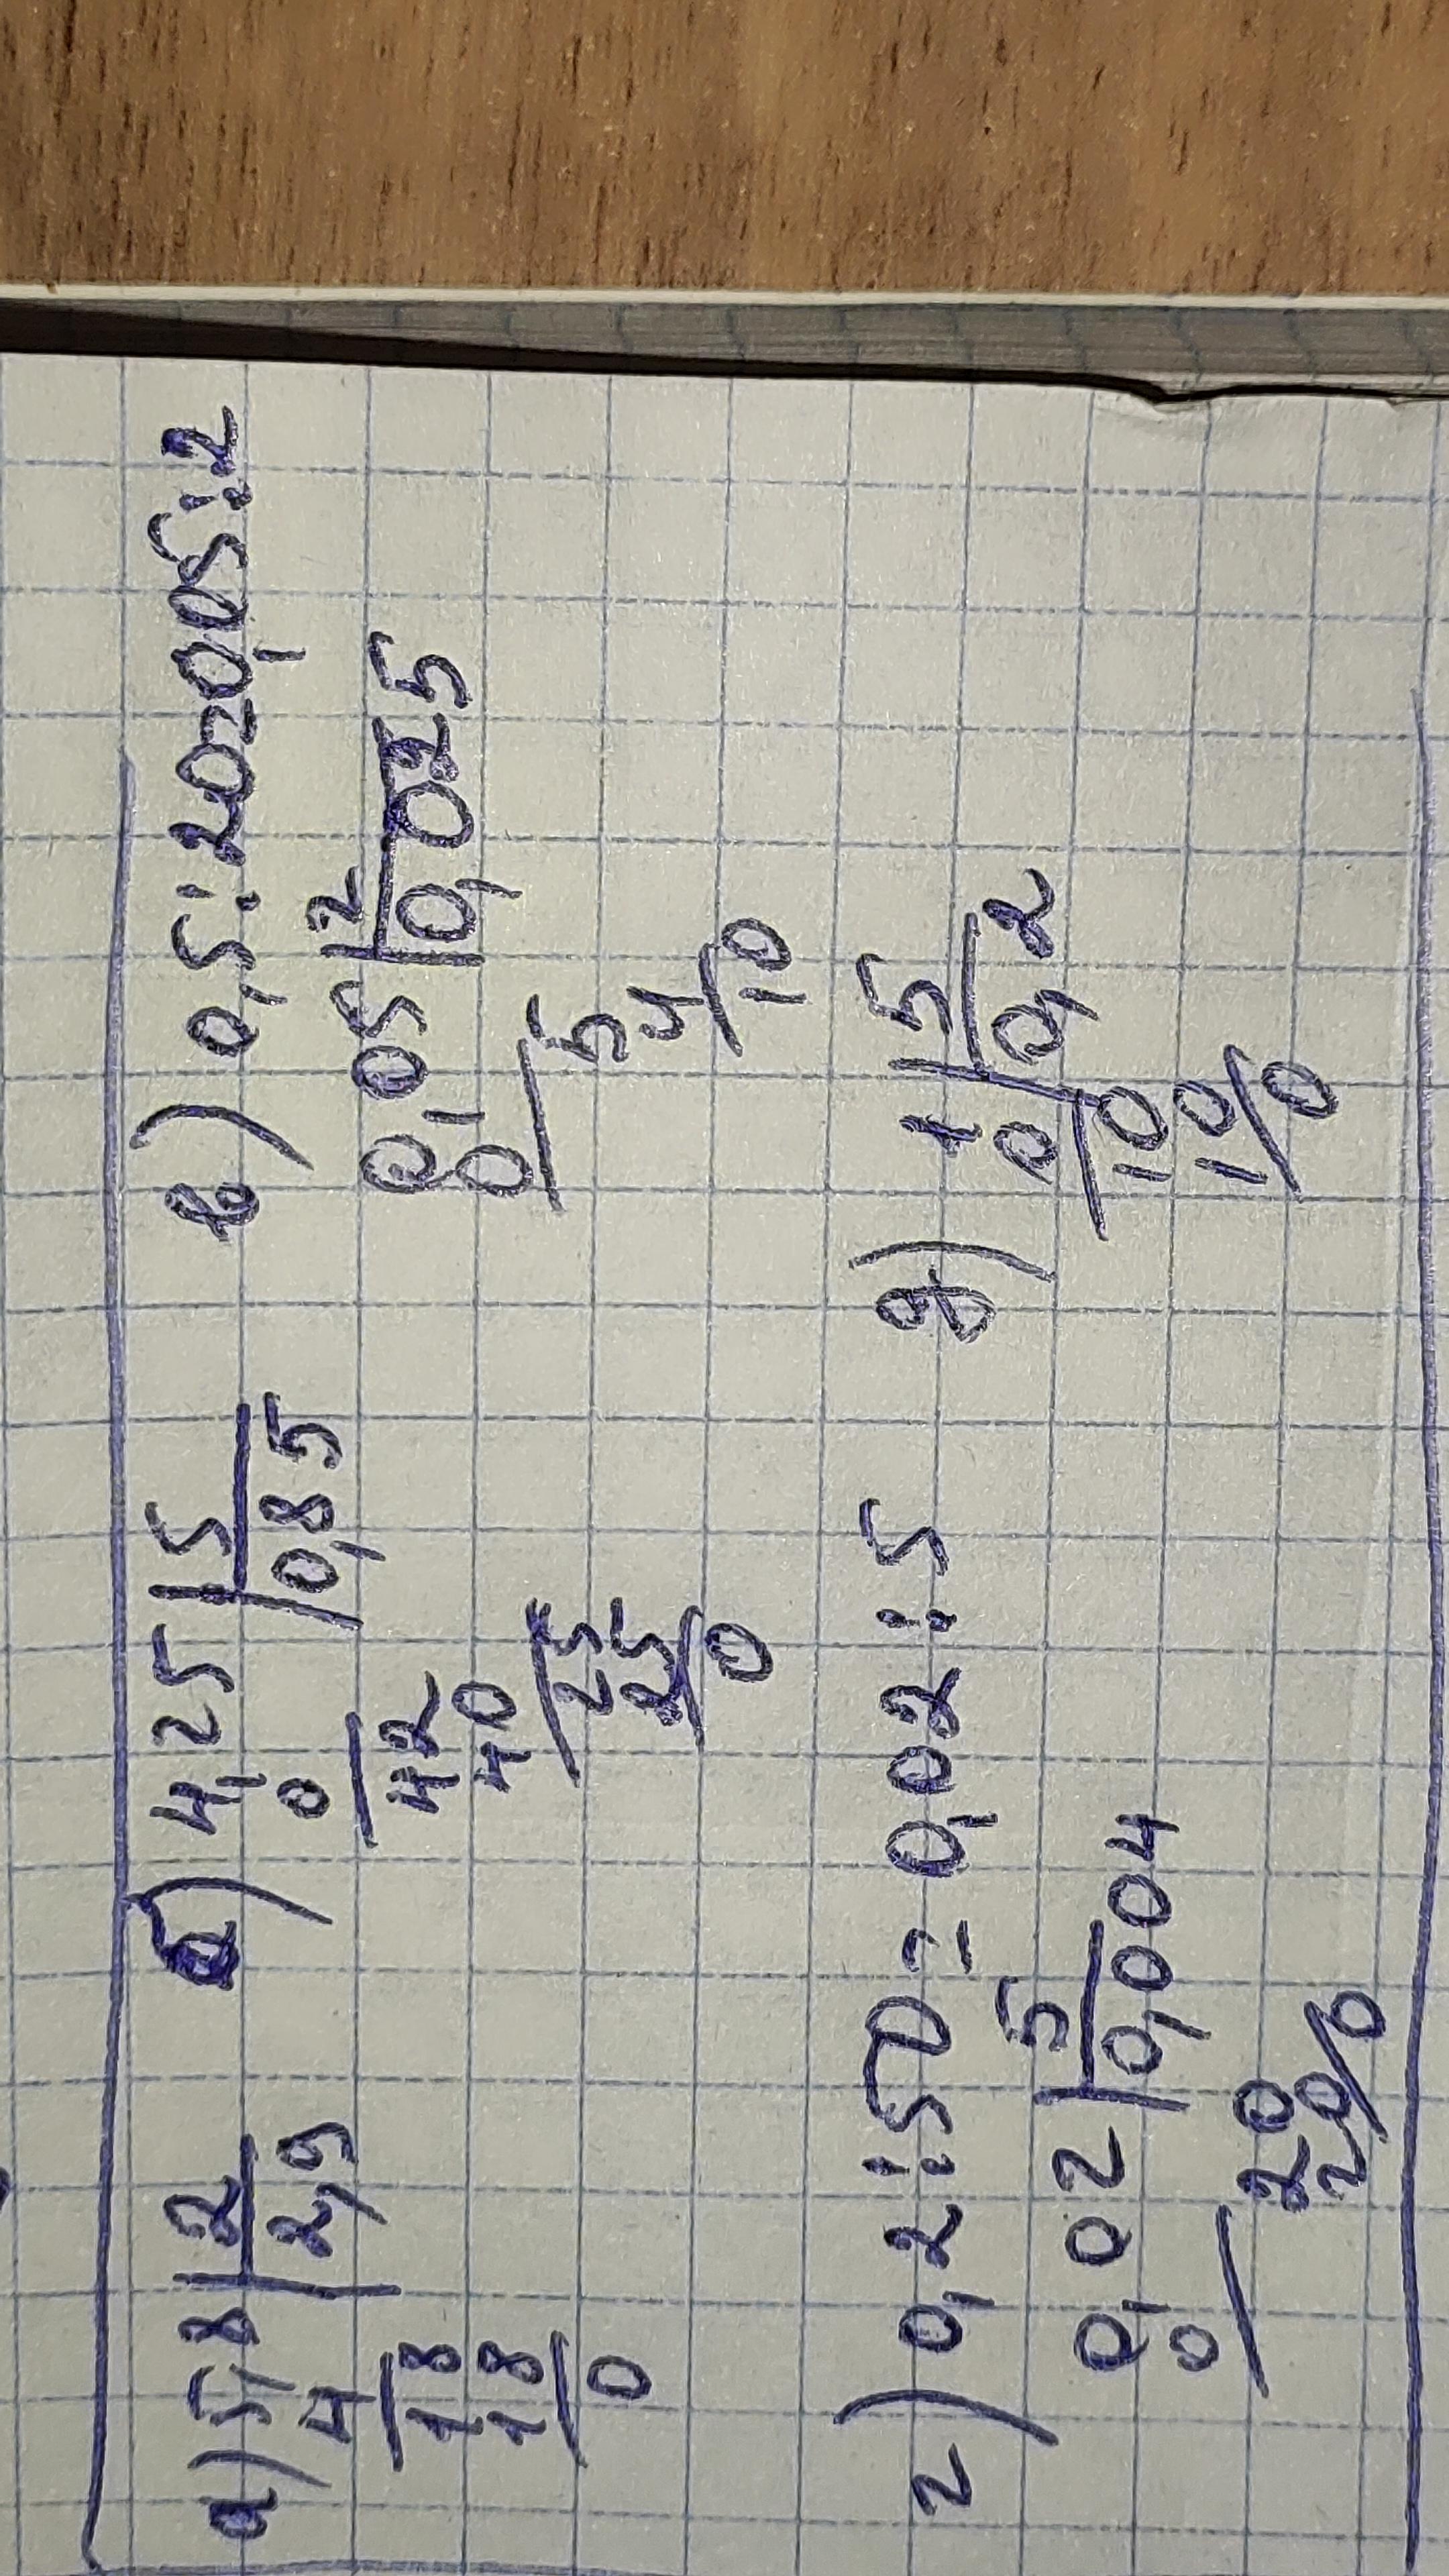 а) 5,8 | 2
4 | 2,9
18
18
0
б) 4,25 | 5
0 | 0,85
42
40
25
25
0
в) 0,5:20=0,05:2
0,05 | 2
0 | 0,025
5
4
10
г) 0,2:50=0,02:5
0,02 | 5
0 | 0,004
20
20
0
д) 1 | 5
0 | 0,2
10
10
0